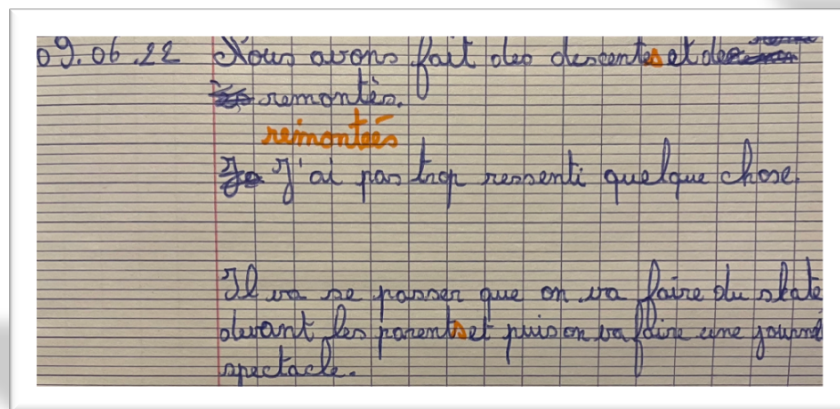 09.06.22 Nous avons fait des descentes et des
remontés.
remonteés
J'ai pas trop ressenti quelque chose.
Il va se passer que on va faire du skate
devant les parents et puis on va faire une journé
spectacle.